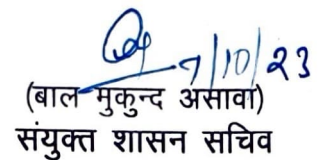 7/10/23
(बाल मुकुन्द असावा)
संयुक्त शासन सचिव